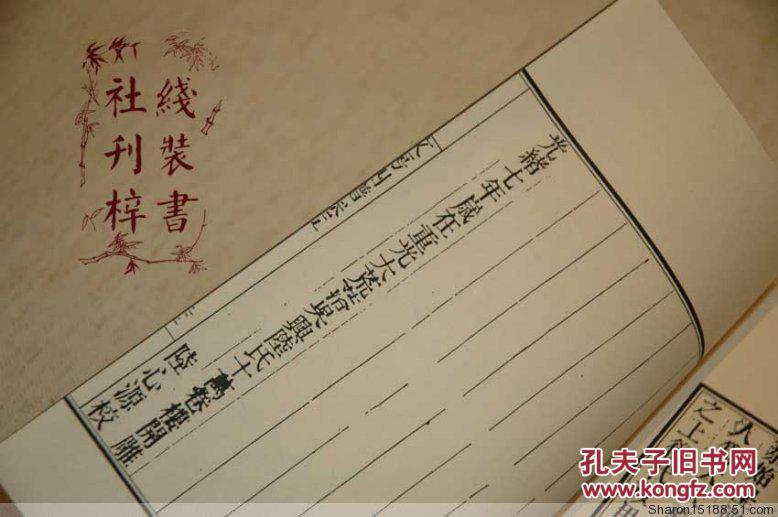 綫裝書
社刊梓
光緒七年歲在重光大荒落吳興陸氏十萬卷樓開雕
陸心源校
之上
孔夫子旧书网
www.kongfz.com
Sharon15188.51.com